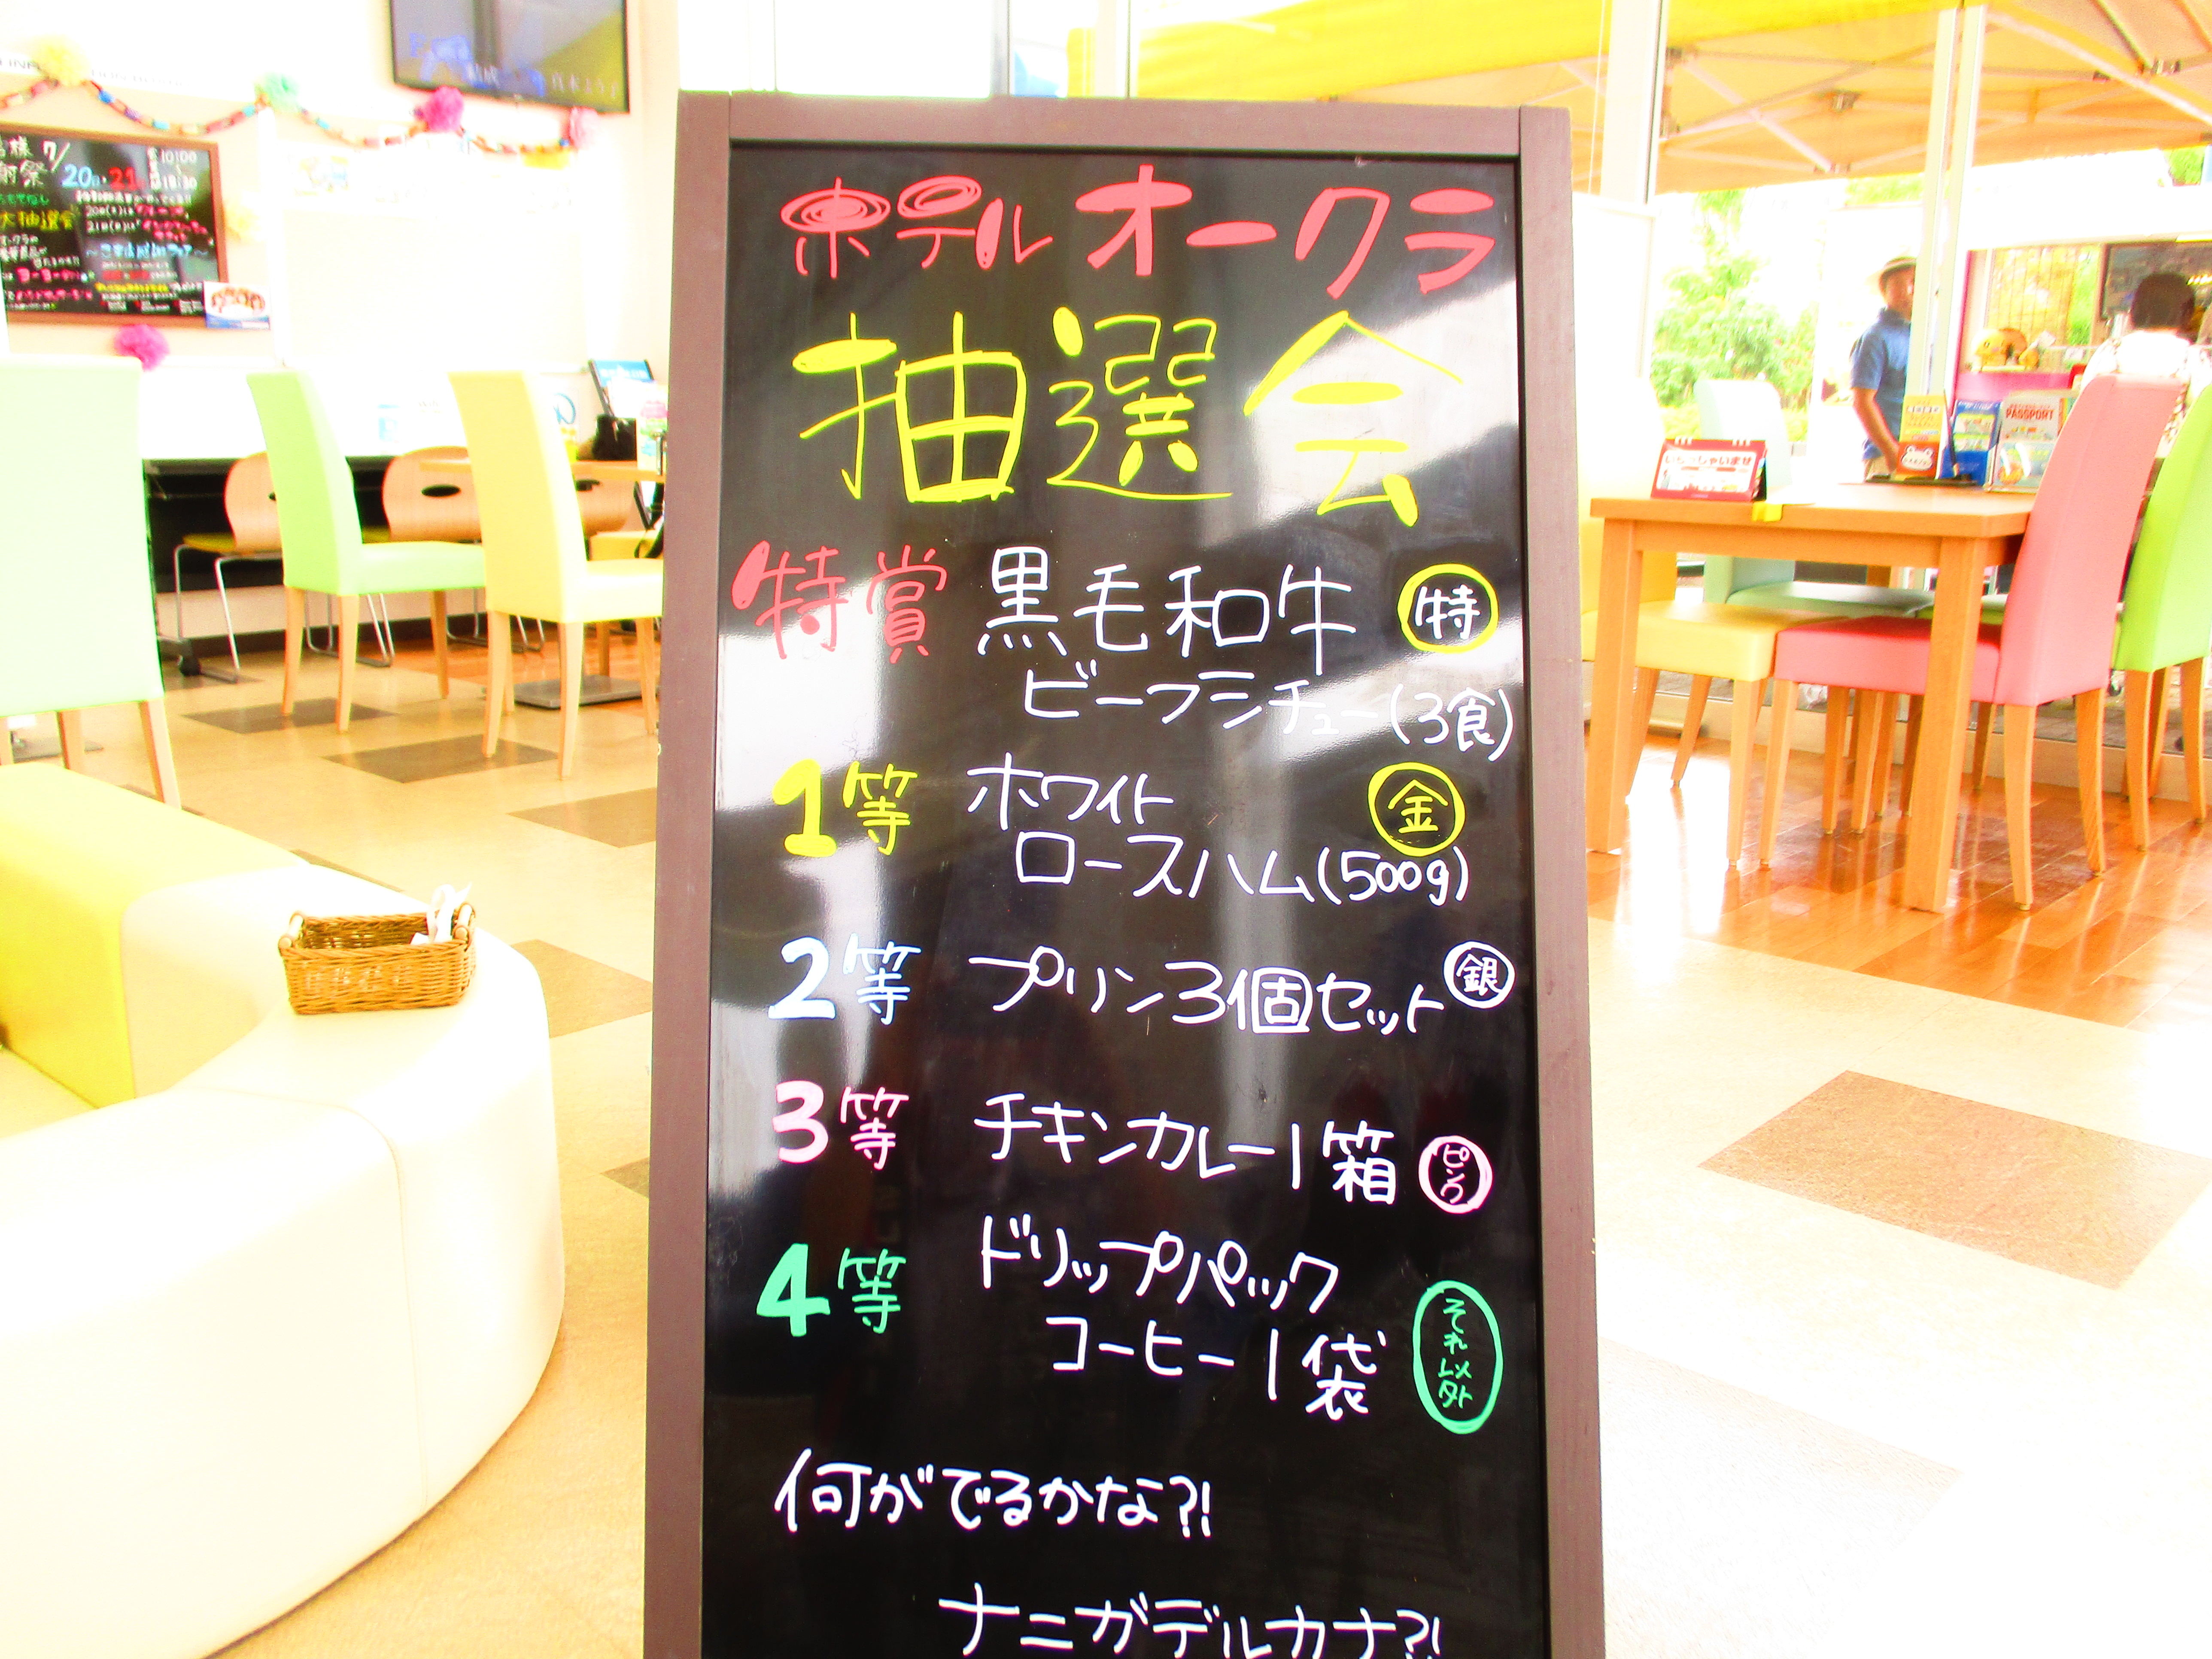 ホテルオークラ
抽選会
特賞 黒毛和牛 特
ビーフシチュー(3食)
1等 ホワイト 金
ロースハム(500g)
2等 プリン3個セット 銀
3等 チキンカレー1箱 ピンク
4等 ドリップパック
コーヒー1袋 それ以外
何がでるかな?!
ナニガデルカナ?!
20日・21日
10:00
18:30
大抽選会
いらっしゃいませ
PASSPORT